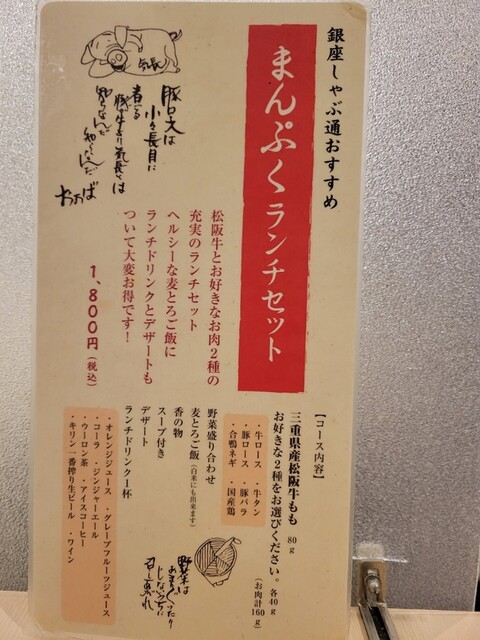 銀座しゃぶ通おすすめ
まんぷくランチセット
松阪牛とお好きなお肉2種の
充実のランチセット
ヘルシーな麦とろご飯に
ランチドリンクとデザートも
ついて大変お得です！
1,800円（税込）
豚ロースは
小々長目に
煮る
気長
【コース内容】
三重県産松阪牛もも 80g
お好きな2種をお選びください。各40g
（お肉計160g）
・牛ロース ・牛タン
・豚ロース ・豚バラ
・合鴨ネギ ・国産鶏
野菜盛り合わせ
麦とろご飯（白米にも出来ます）
香の物
スープ付き
デザート
ランチドリンク一杯
・オレンジジュース ・グレープフルーツジュース
・コーラ ・ジンジャーエール
・ウーロン茶 ・アイスコーヒー
・キリン一番搾り生ビール ・ワイン
野菜は
あまりくったり
しないうちに
召しあがれ